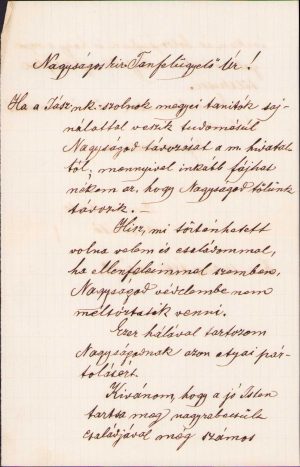 Nagyságos kir. Tanfelügyelő Úr!
Ha a Jász.nk.-szolnok megyei tanítók saj-
nálattal veszik tudomásúl
Nagyságod távozását a m. hivatal-
tól; mennyivel inkább fájhat
nékem az, hogy Nagyságod tőlünk
távozik. –
Hisz, mi történhetett
volna velem és családommal,
ha ellenfeleimmel szemben,
Nagyságod védelembe nem
méltóztatik venni.
Ezer hálával tartozom
Nagyságodnak azon atyai pár-
tolásért.
Kívánom, hogy a jó Isten
tartsa meg nagyrabecsült
családjával még számos